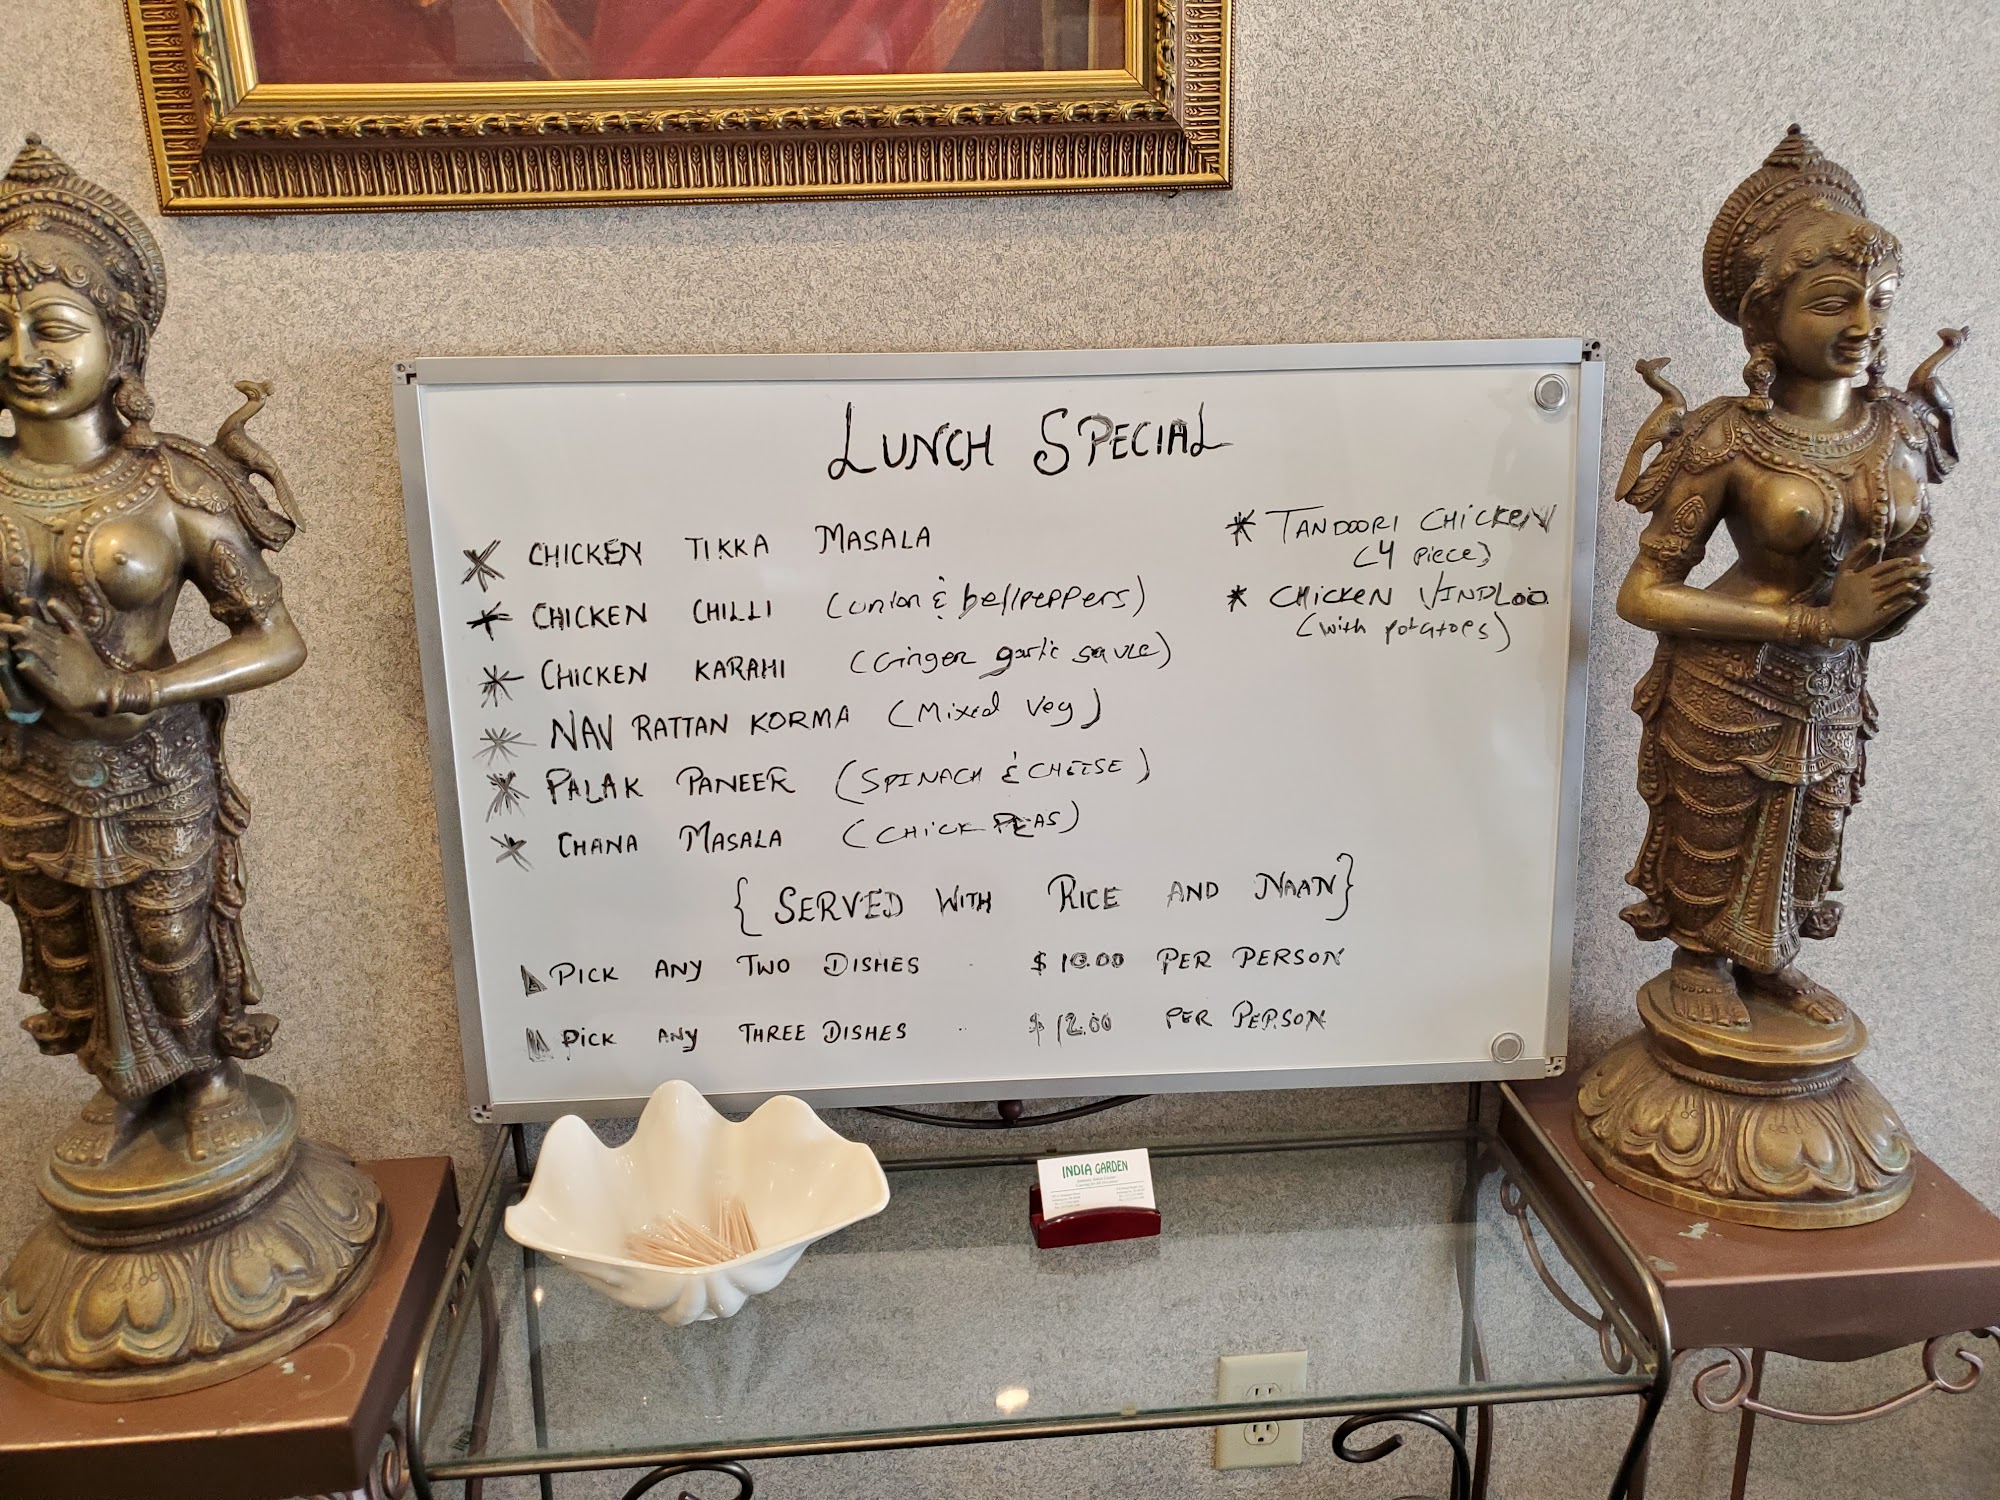 LUNCH SPECIAL
* CHICKEN TIKKA MASALA
* CHICKEN CHILLI (onion & bellpeppers)
* CHICKEN KARAHI (Ginger garlic sauce)
* NAV RATTAN KORMA (Mixed Veg)
* PALAK PANEER (SPINACH & CHEESE)
* CHANA MASALA (CHICK PEAS)
* TANDOORI CHICKEN
(4 piece)
* CHICKEN VINDLOO
(with potatoes)
{SERVED WITH RICE AND NAAN}
PICK ANY TWO DISHES $10.00 PER PERSON
PICK ANY THREE DISHES $12.00 PER PERSON
INDIA GARDEN